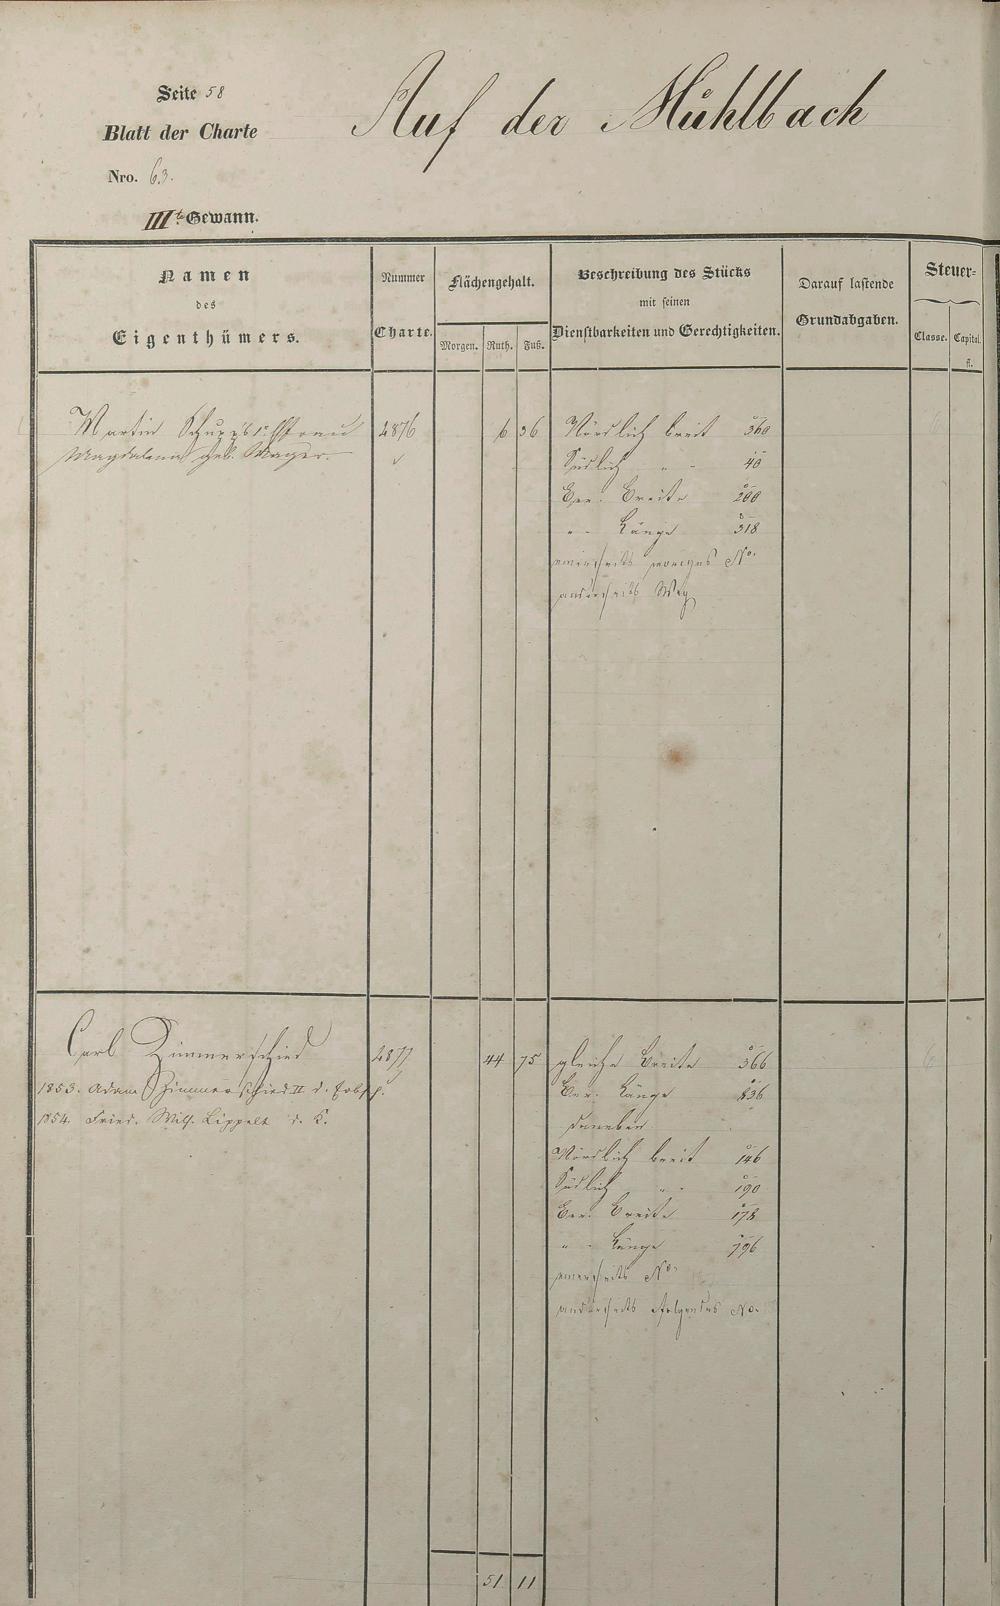 Seite 58
Auf der Mühlbach
Blatt der Charte
Nro. 63.
IIIte Gewann.
Namen
des
Eigenthümers.
Nummer
Charte.
Flächengehalt.
Morgen. Ruth. Fuß.
Beschreibung des Stücks
mit seinen
Dienstbarkeiten und Gerechtigkeiten.
Darauf lastende
Grundabgaben.
Steuer=
Classe. Capital.
fl.
Martin Schupp's 1r Ehefrau 2876 6 36 Nördlich breit 360
Magdalena geb. Mager. Südlich " - 40
Ber. Breite 200
" - Länge 318
einerseits voriges No.
anderseits Weg
Carl Zimmerschied 2877 44 75 gleiche Breite 366
1853. Adam Zimmerschied II d. Erbsch. Ber. Länge 836
1854. Fried. Wilh. Lippelt d. K. daneben
Nördlich breit 146
Südlich " - 190
Ber. Breite 178
" - Länge 796
einerseits No.
anderseits folgendes No.
51 11